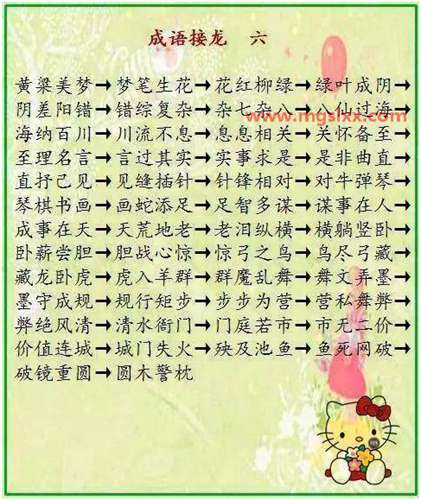 成语接龙 六
黄粱美梦→梦笔生花→花红柳绿→绿叶成阴→
阴差阳错→错综复杂→杂七杂八→八仙过海→
www.mgslxx.com
海纳百川→川流不息→息息相关→关怀备至→
至理名言→言过其实→实事求是→是非曲直→
直抒己见→见缝插针→针锋相对→对牛弹琴→
琴棋书画→画蛇添足→足智多谋→谋事在人→
成事在天→天荒地老→老泪纵横→横躺竖卧→
卧薪尝胆→胆战心惊→惊弓之鸟→鸟尽弓藏→
藏龙卧虎→虎入羊群→群魔乱舞→舞文弄墨→
墨守成规→规行矩步→步步为营→营私舞弊→
弊绝风清→清水衙门→门庭若市→市无二价→
价值连城→城门失火→殃及池鱼→鱼死网破→
破镜重圆→圆木警枕